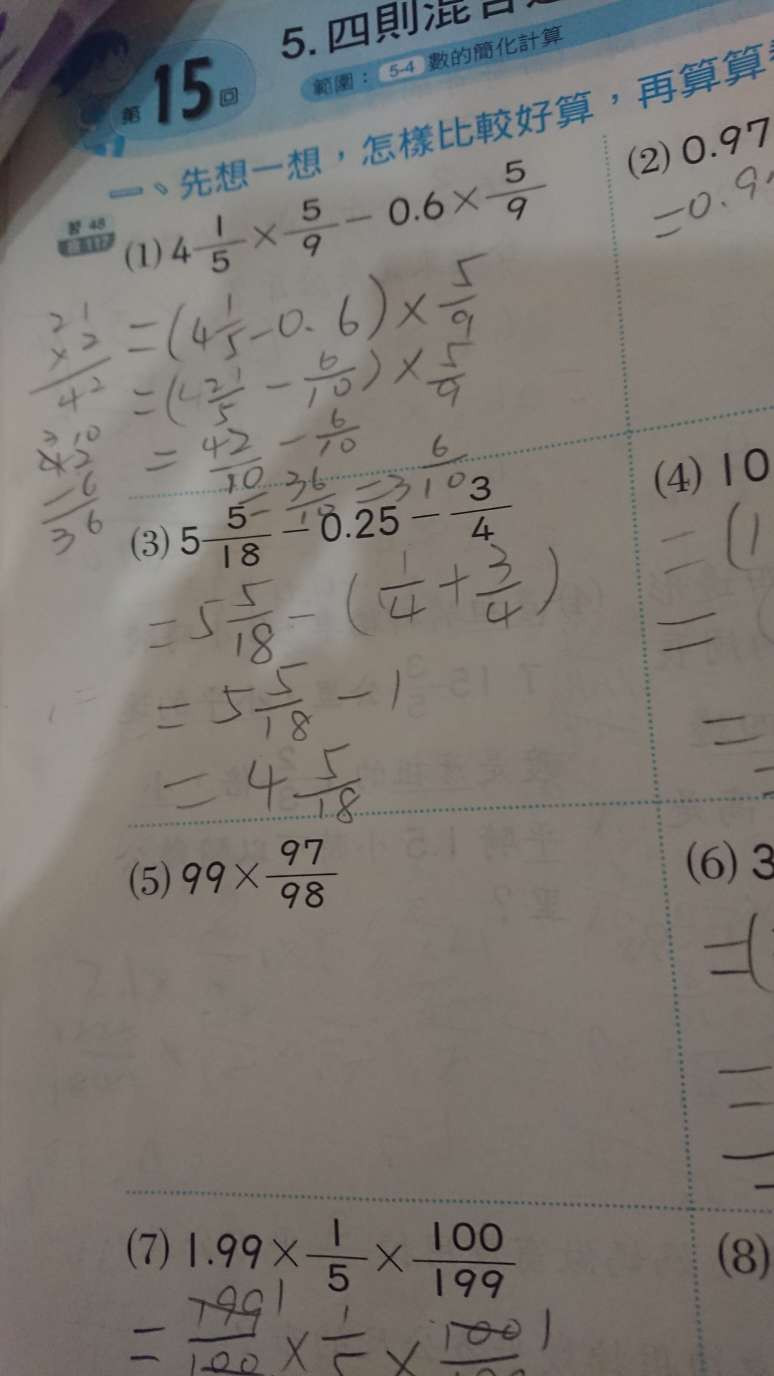 5. 四則混合
第15回
範圍：5-4 數的簡化計算
一、先想一想，怎樣比較好算，再算算
習 48
(1) 4 1/5 × 5/9 − 0.6 × 5/9
= (4 1/5 - 0.6) × 5/9
= (4 21/5 - 6/10) × 5/9
= 42/10 - 6/10
= 36/10 = 3 6/10
21
× 2
42
42
- 6
36
(2) 0.97
= 0.9
(3) 5 5/18 − 0.25 − 3/4
= 5 5/18 - (1/4 + 3/4)
= 5 5/18 - 1
= 4 5/18
(4) 10
= (1
=
=
(5) 99 × 97/98
(6) 3
= (
(7) 1.99 × 1/5 × 100/199
= 199/100 × 1/5 × 100
(8)